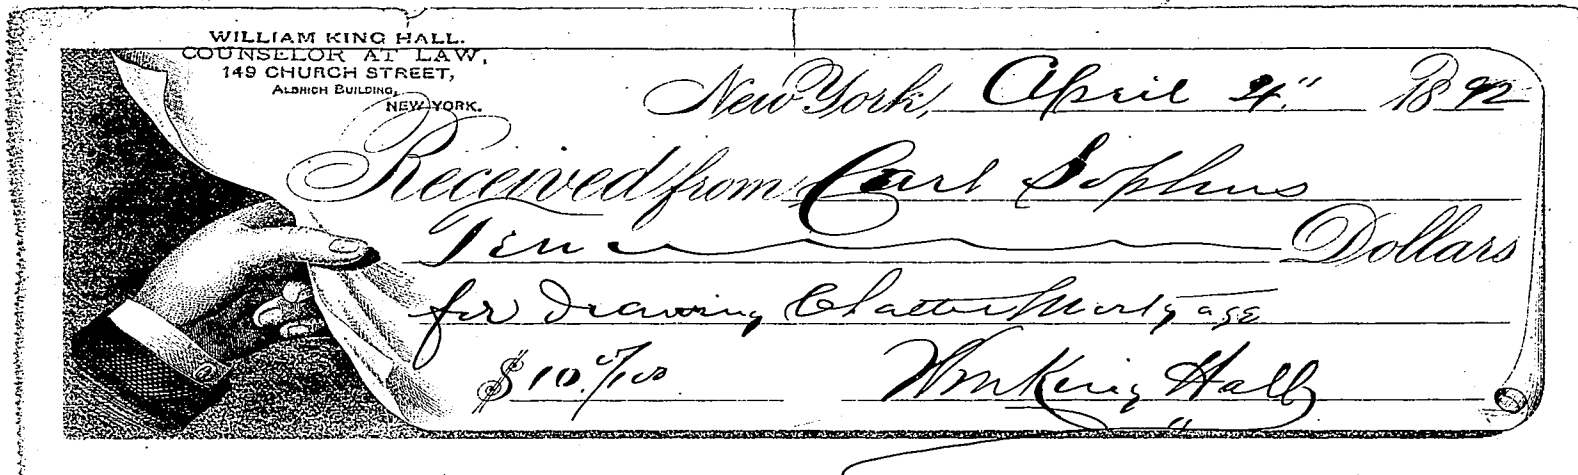 WILLIAM KING HALL.
COUNSELOR AT LAW,
149 CHURCH STREET,
ALDRICH BUILDING,
NEW YORK.
New York, April 4" 1892
Received from Carl Sophus
Ten Dollars
for Drawing Chattel Mortgage
$10.00/100 Wm King Hall